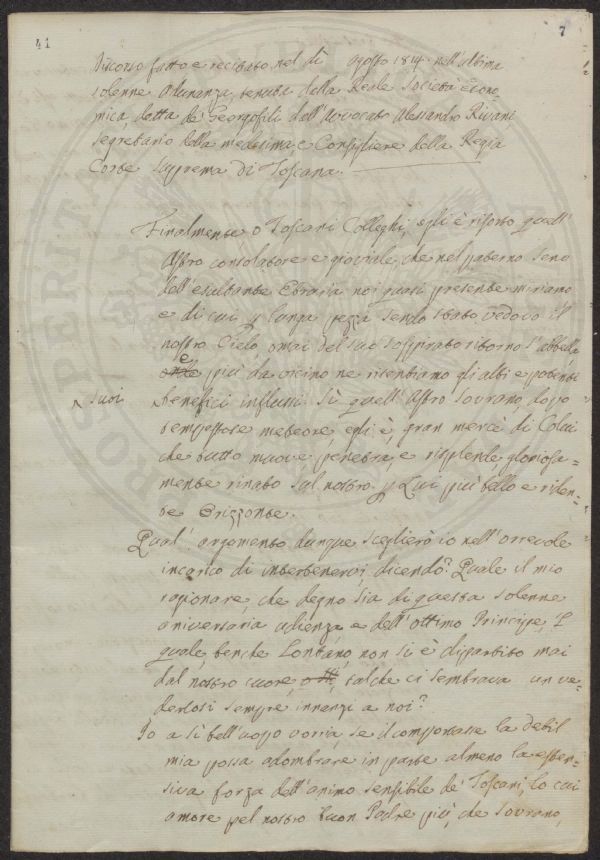 41
7
Discorso fatto e recitato nel dì agosto 1814. nell'ultima
solenne Adunanza tenuta della Reale Società Econo-
mica, detta de' Georgofili dall'Avvocato Alessandro Rivani
Segretario della medesima, e Consigliere della Regia
Corte Suprema di Toscana.
Finalmente o Toscani Colleghi, egli è risorto quell'
Astro consolatore e gioviale, che nel paterno seno
dell'esultante Etruria noi quasi presente miriamo
e di cui p lunga pezza sendo stato vedovo il
nostro Cielo, omai del suo sospirato ritorno s'abbella
e più da vicino ne risentiamo gli alti e potenti
^ suoi ^ benefici influssi. Sì quell'Astro Sovrano, dopo
tempestose meteore, egli è, gran mercè di Colui
che tutto muove penetra, e risplende, gloriosa-
mente rinato sul nostro, p Lui più bello e riden-
te Orizzonte.
Qual' argomento dunque sceglierò io nell'orrevole
incarico di intertenervi, dicendo? Quale il mio
ragionare, che degno sia di questa solenne
aniversaria udienza e dell'ottimo Principe, il
quale, benche Lontano, non si è dipartito mai
dal nostro cuore, talche ci sembrava un ve-
derlosi sempre innanzi a noi?
Io a sì bell'uopo vorria, se il comportasse la debil
mia possa adombrare in parte almeno la esten-
siva forza dell'animo sensibile de' Toscani, lo cui
amore pel nostro buon Padre più, che Sovrano,
PROSPERITA